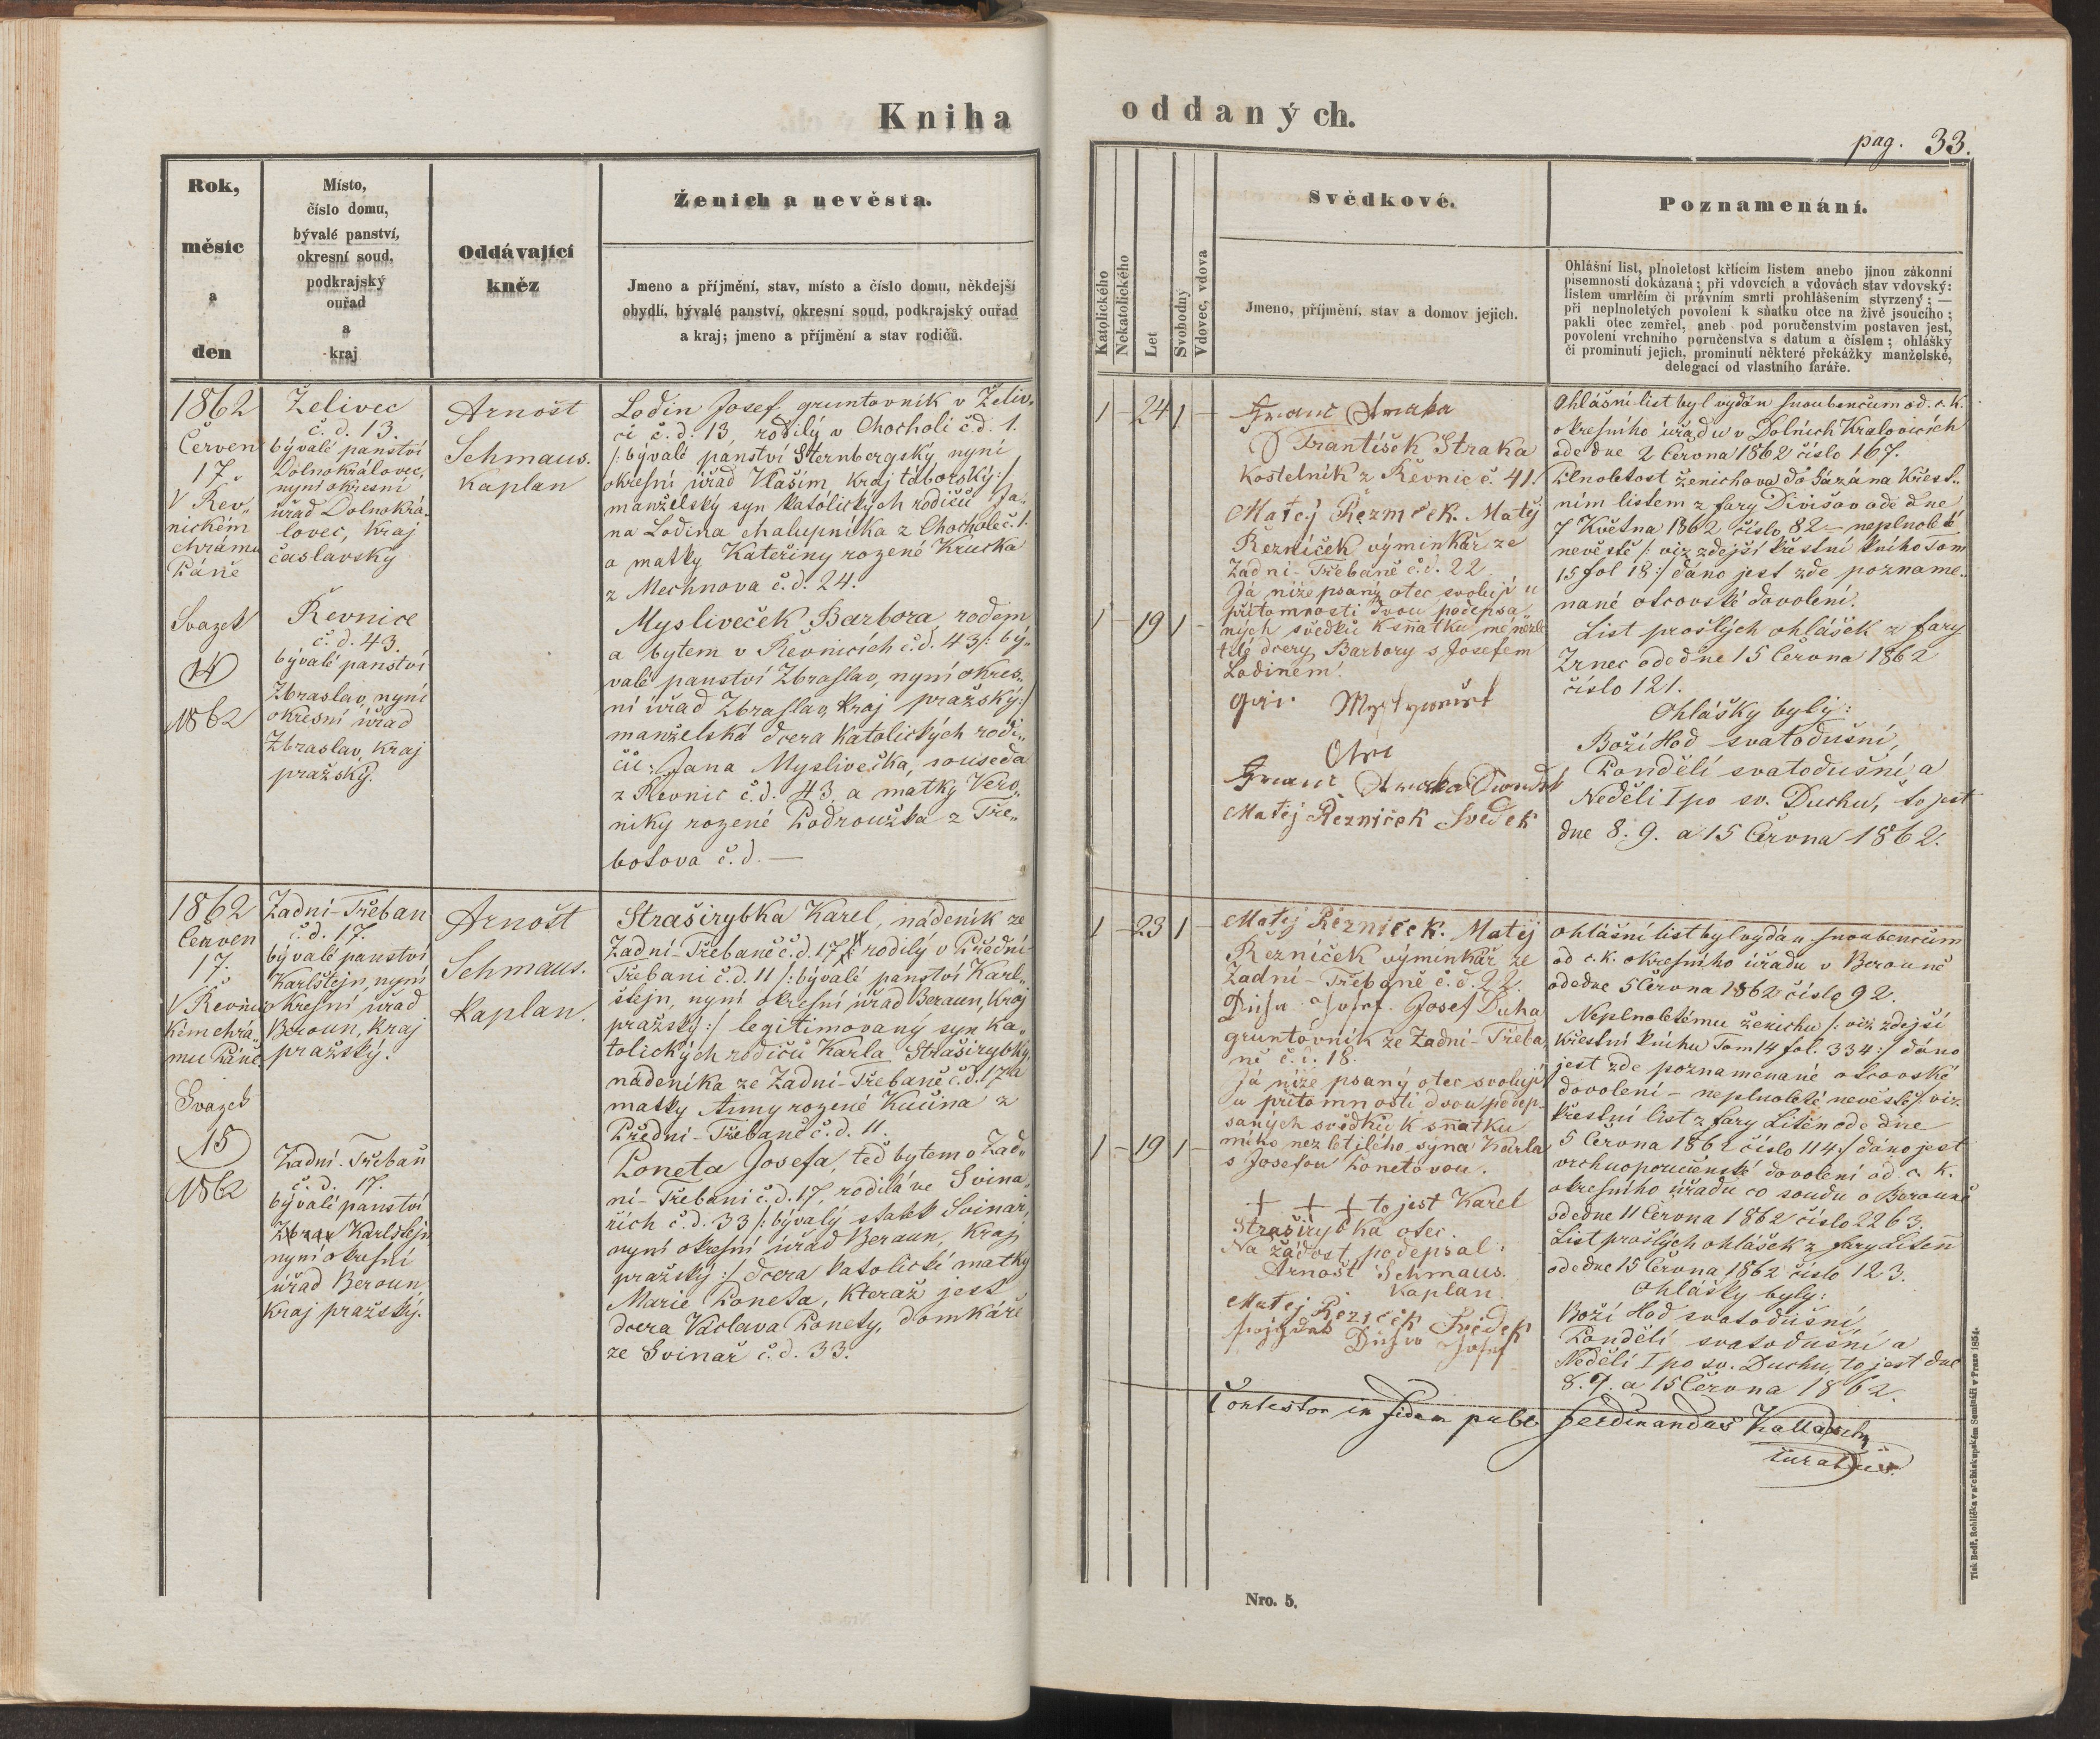 Kniha
oddaných.
pag. 33.
Rok,
měsíc
a
den
Místo,
číslo domu,
bývalé panství,
okresní soud,
podkrajský
ouřad
a
kraj
Oddávající
kněz
Ženich a nevěsta.
Jmeno a příjmění, stav, místo a číslo domu, někdejší
obydlí, bývalé panství, okresní soud, podkrajský ouřad
a kraj; jmeno a příjmění a stav rodičů.
Katolického
Nekatolického
Let
Svobodný
Vdovec, vdova
Svědkové.
Jmeno, příjmění, stav a domov jejich.
Poznamenání.
Ohlášní list, plnoletost křticím listem anebo jinou zákonní
písemností dokázaná; při vdovcích a vdovách stav vdovský:
listem umrlčím či právním smrti prohlášením stvrzený; —
při neplnoletých povolení k sňatku otce na živě jsoucího;
pakli otec zemřel, aneb pod poručenstvím postaven jest,
povolení vrchního poručenstva s datum a číslem; ohlášky
či prominutí jejich, prominutí některé překážky manželské,
delegací od vlastního faráře.
1862
Červen
17.
V Řev„
nickém
chrámu
Páně
Svazek
14
1862
Želivec
č. d. 13.
bývalé panství
Dolnokralovec,
nyní okresní
úřad Dolnokra„
lovec, kraj
čáslavský
Řevnice
č. d. 43.
bývalé panství
Zbraslav, nyní
okresní úřad
Zbraslav, kraj
pražský.
Arnošt
Schmaus.
kaplan
Lodin Josef, gruntovník v Želiv„
ci č. d. 13 rodilý v Chocholi č.d. 1.
/: bývalé panství Sternbergský nyní
okresní úřad Vlašim, kraj táborský :/
manželský syn katolických rodičů Ja„
na Lodina chalupníka z Chochole č. 1.
a matky Kateřiny rozené Krucka
z Mechnova č. d. 24.
Mysliveček Barbora, rodem
a bytem v Řevnicích č. d. 43 /: by„
valé panství Zbraslav, nyní okres„
ní úřad Zbraslav, kraj pražský :/
manželská dcera katolických rodi„
čů: Jana Myslivečka, souseda
z Řevnic č. d. 43, a matky Vero„
niky rozené Podroužka z Tře„
botova č. d. —
1 – 24 1 –
1 – 19 1 –
Franc Straka
František Straka
kostelník z Řevnic č. 41.
Matěj Řezniček. Matěj
Řezníček výminkář ze
Zadní-Třebáně č. d. 22
Já níže psaný otec svoluji u
přítomnosti dvou podepsa„
ných svědků k sňatku mé nezle
tilé dcery Barbory s Josefem
Lodinem.
Otec
Franc Straka
Matěj Řezniček Svědek
Ohlášní list byl vydán snoubencům od c. k.
okresního úřadu v Dolních Kralovicích
ode dne 2 Června 1862 číslo 167.
Plnoletost ženichova dokázána křest„
ním listem z fary Divišov ode dne
7 Května 1862 číslo 82 – neplnoleté
nevěstě /: viz zdejší křestní knihu Tom
15 fol 18 :/ dáno jest zde pozname„
nané otcovské dovolení.
List prošlých ohlášek z fary
Zrnec ode dne 15 Června 1862
číslo 121.
Ohlášky byly:
Boží Hod svatodušní,
Pondělí svatodušní a
Neděli I po sv. Duchu, to jest
dne 8. 9. a 15 Června 1862.
1862
Červen
17.
V Řevnic
kém chrá„
mu Páně
Svazek
15
1862
Zadní-Třebaň
č. d. 17.
bývalé panství
Karlštejn, nyní
okresní úřad
Beroun, kraj
pražský.
Zadní-Třebaň
č. d. 17.
bývalé panství
Karlštejn
nyní okresní
úřad Beroun
kraj pražský.
Arnošt
Schmaus.
kaplan.
Straširybka Karel, nádeník ze
Zadní-Třebaně č. d. 17 /: rodilý v Přední
Třebani č. d. 11 /: bývalé panství Karl„
štejn, nyní okresní úřad Beraun, kraj
pražský :/ legitimovaný syn ka„
tolických rodičů Karla Straširybky
nádeníka ze Zadní-Třebaně č. d. 17 a
matky Anny rozené Kučina z
Přední-Třebaně č. d. 11.
Poneta Josefa, teď bytem v Zad„
ní-Třebani č. d. 17, rodilá ve Svina„
řích č. d. 33 /: bývalý statek Svinař,
nyní okresní úřad Beraun, kraj
pražský :/ dcera katolické matky
Marie Poneta, kteráž jest
dcera Václava Ponety, domkáře
ze Svinař č. d. 33.
1 – 23 1 –
1 – 19 1 –
Matěj Řezniček. Matěj
Řezníček výminkář ze
Zadní-Třebaně č. d. 22.
Josef Duha
gruntovník ze Zadní-Třeba„
ně č. d. 18.
Já níže psaný otec svoluji
u přítomnosti dvou podep„
saných svědků k sňatku
mého nezletilého syna Karla
s Josefou Ponetovou.
+ + + to jest Karel
Straširybka otec.
Na žádost podepsal:
Arnošt Schmaus.
kaplan.
Matěj Řezniček Svědek
Ohlášní list byl vydán snoubencům
od c. k. okresního úřadu v Berouně
ode dne 5 Června 1862 číslo 92.
Neplnoletému ženichu /: viz zdejší
křestní knihu Tom 14 fol. 334 :/ dáno
jest zde poznamenané otcovské
dovolení – neplnoleté nevěstě /: viz
křestní list z fary Liteň ode dne
5 Června 1862 číslo 114 :/ dáno jest
vrchnoporučenské dovolení od c. k.
okresního úřadu co soudu v Berouně
ode dne 11 Června 1862 číslo 2263.
List prošlých ohlášek z fary Liteň
ode dne 15 Června 1862 číslo 123.
Ohlášky byly:
Boží Hod svatodušní,
Pondělí svatodušní a
Neděli I po sv. Duchu, to jest dne
8. 9. a 15 Června 1862.
Contestor in fidem publ. Ferdinandus Kallasch
Curatus.
Nro. 5.
Tisk Bedř. Rohlíčka v arcibiskupském Semináři v Praze 1854.